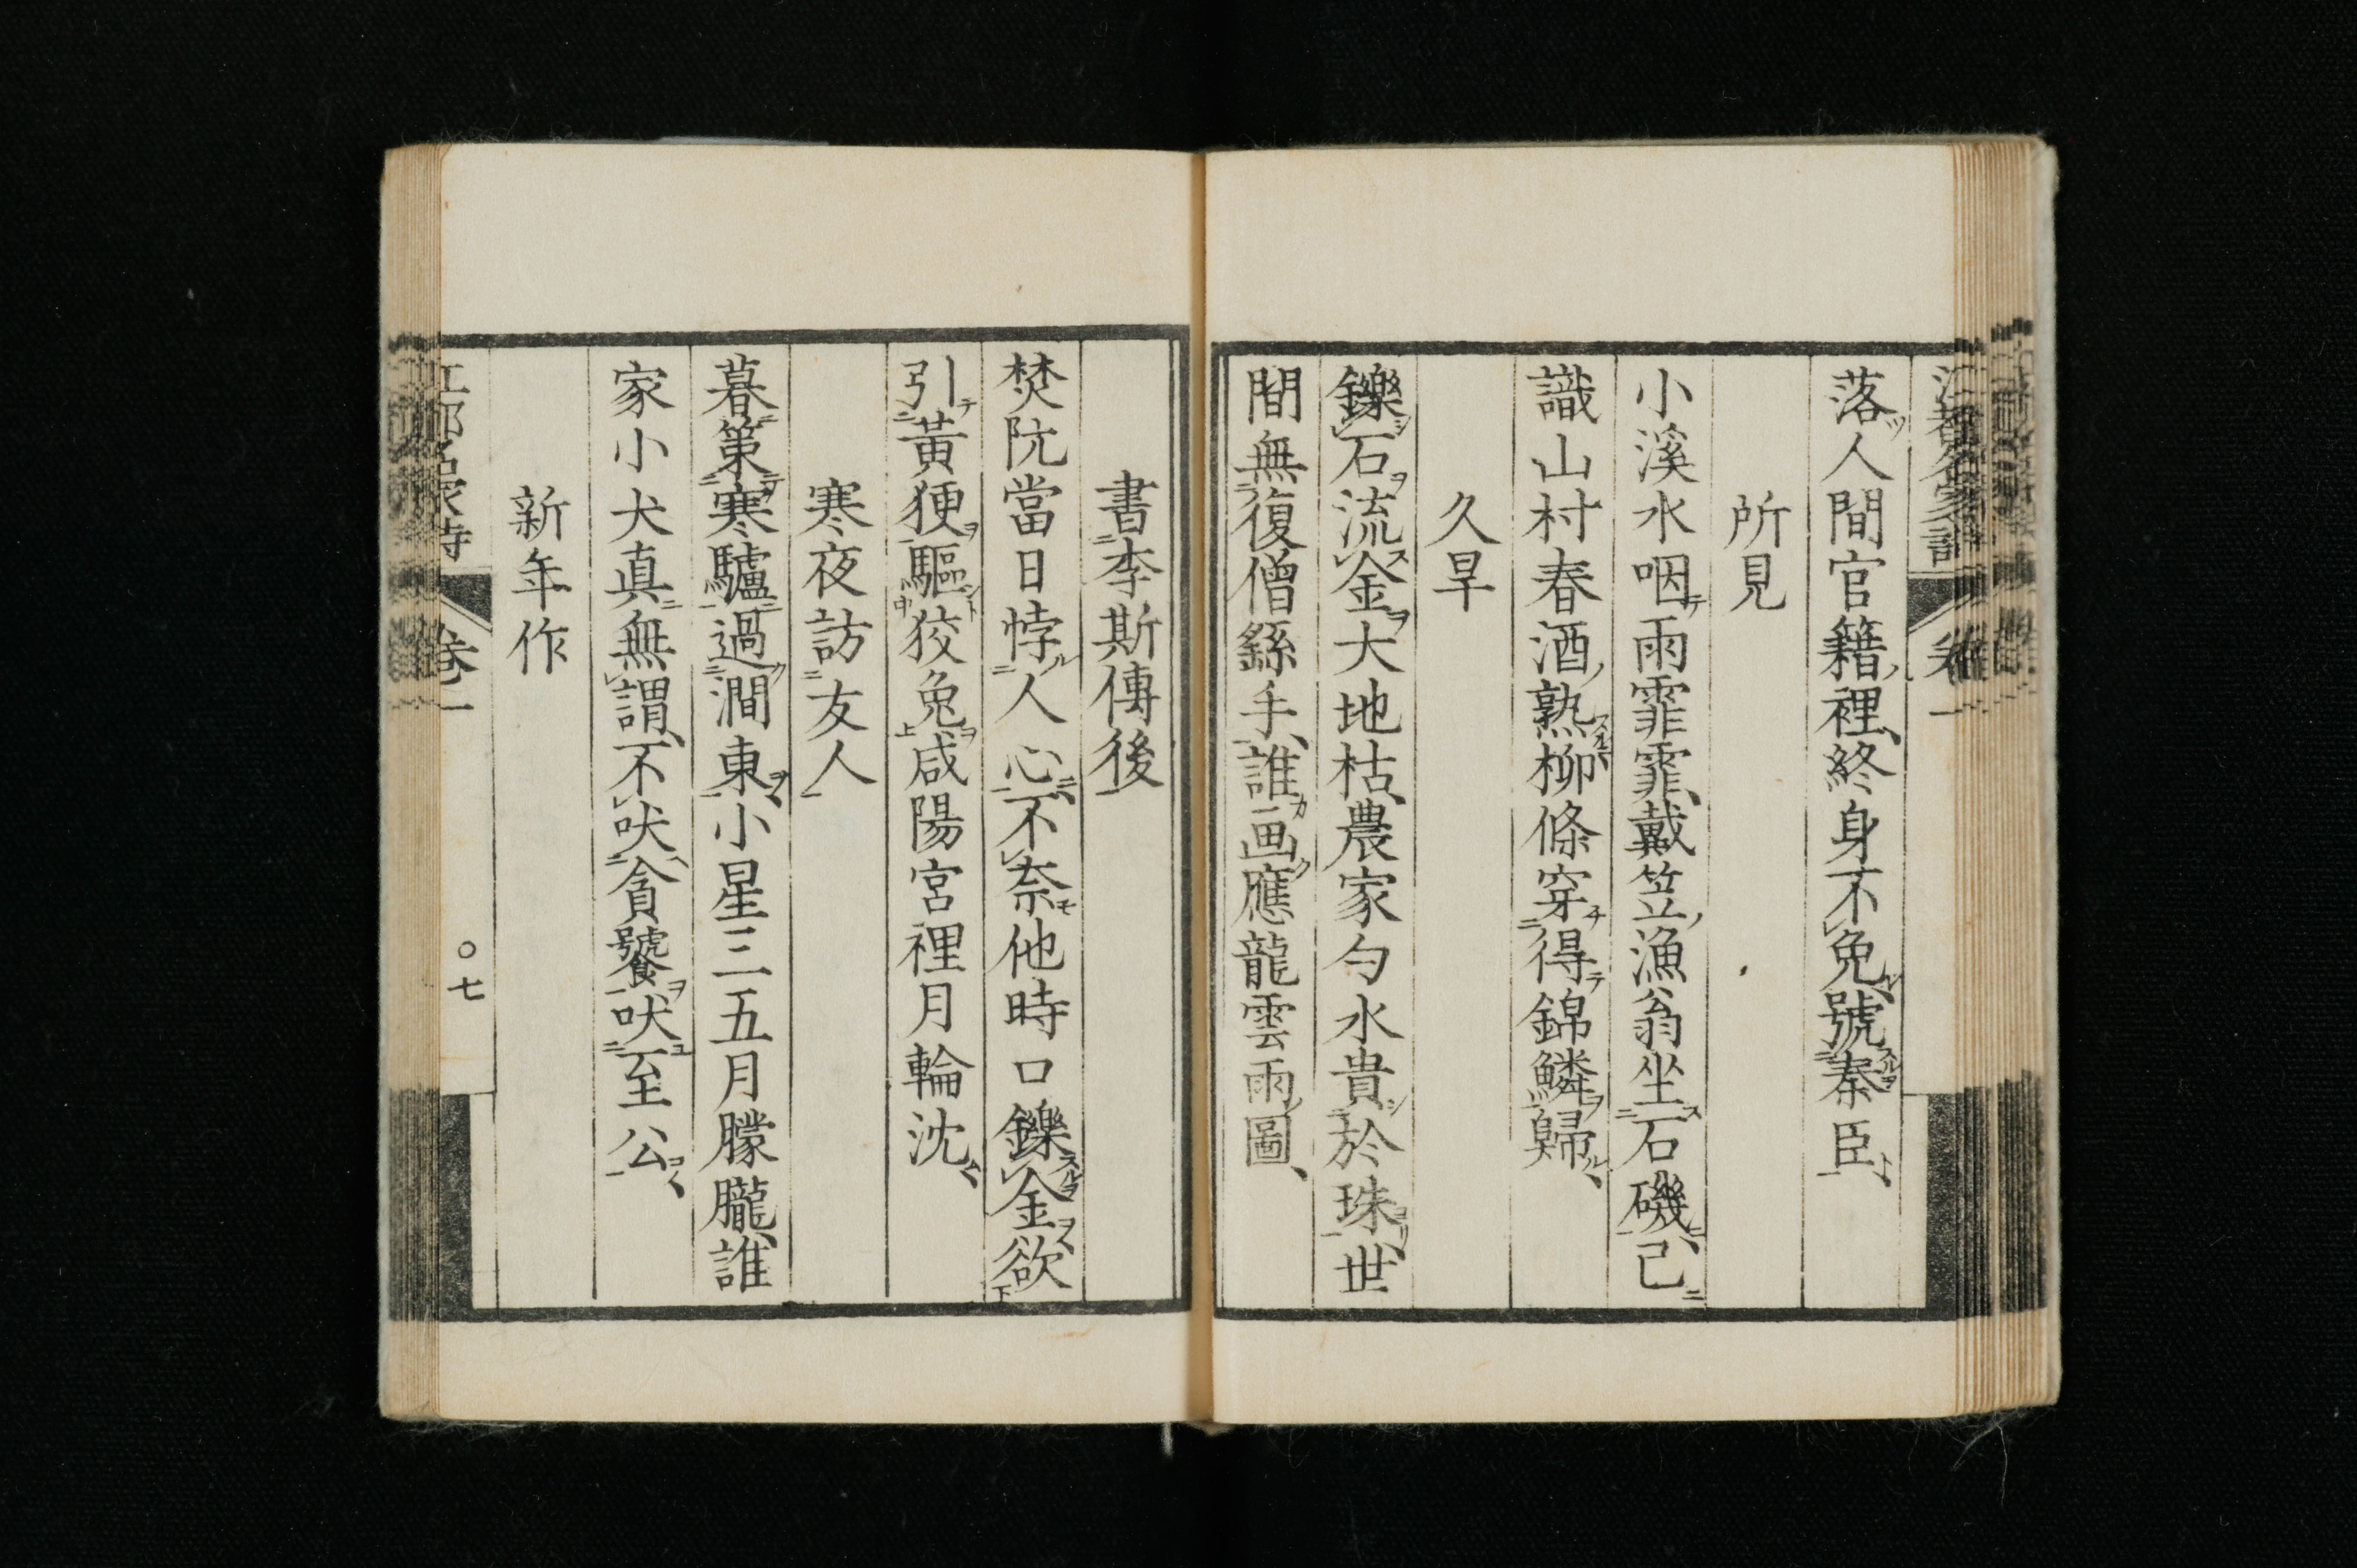 落人間官籍裡終身不免號秦臣
所見
小溪水咽雨霏霏戴笠漁翁坐石磯已
識山村春酒熟柳條穿得錦鱗歸
久旱
鑠石流金大地枯農家勺水貴於珠世
間無復僧繇手誰画應龍雲雨圖
書李斯傳後
焚阬當日悖人心不奈他時口鑠金欲
引黃㹴驅狡兔咸陽宮裡月輪沈
寒夜訪友人
暮策寒驢過澗東小星三五月朦朧誰
家小犬真無謂不吠貪饕吠至公
新年作
卷一
〇七